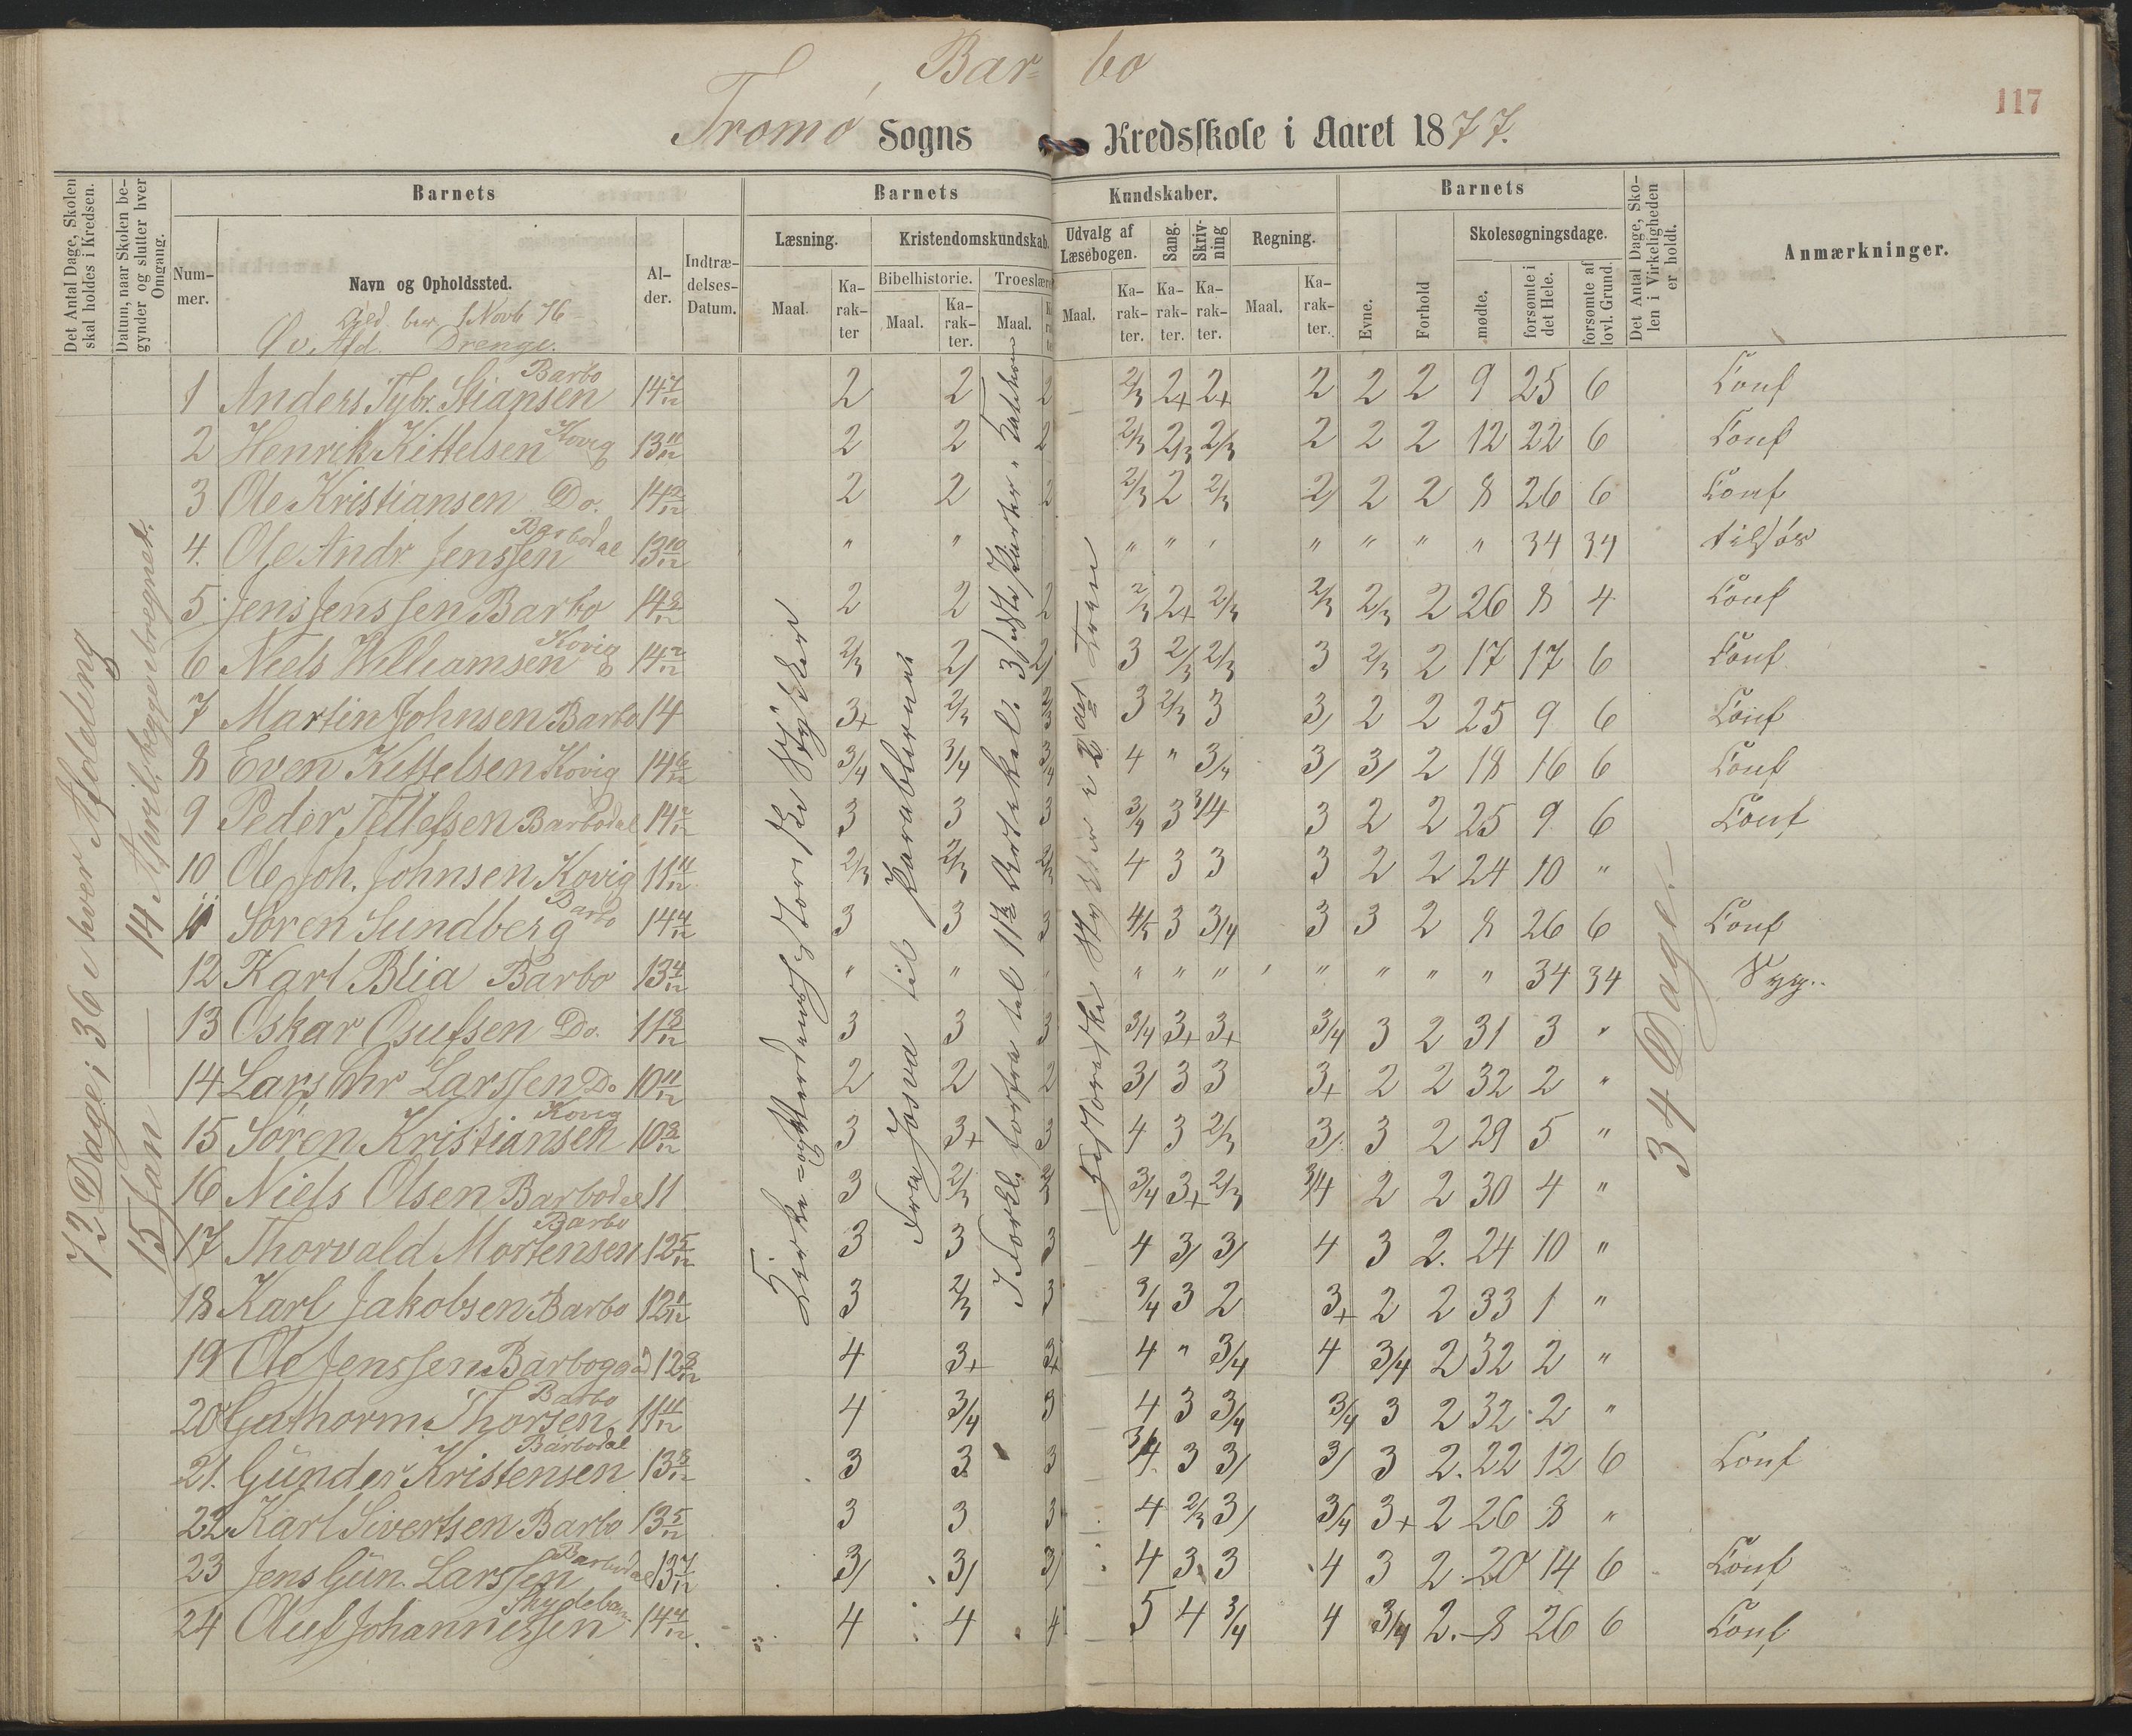 Bar- bo
Tromø Sogns Kredsskole i Aaret 1877.
117
Det Antal Dage, Skolen skal holdes i Kredsen.
Datum, naar Skolen begynder og slutter hver Omgang.
Barnets
Nummer.
Navn og Opholdssted.
Alder.
Indtrædelses-Datum.
Barnets Kundskaber.
Læsning.
Maal.
Karakter
Kristendomskundskab.
Bibelhistorie.
Maal.
Karakter.
Troeslære
Maal.
Udvalg af Læsebogen.
Maal.
Karakter.
Sang.
Karakter.
Skrivning
Karakter.
Regning.
Maal.
Karakter.
Barnets
Evne.
Forhold
Skolesøgningsdage.
mødte.
forsømte i det Hele.
forsømte af lovl. Grund.
Det Antal Dage, Skolen i Virkeligheden er holdt.
Anmærkninger.
Novb 76
Øv Afd. Drenge.
72 Dage; 36 i hver Afdeling
15 Jan — 14 April, begge iberegnet.
Fra Josva til
34 Dage.
1 Anders Tybr. Stiansen Barbo 14 7/12 2 2 2 2/3 2+ 2+ 2 2 2 9 25 6 Conf
2 Henrik Kittelsen Kovig 13 11/12 2 2 2 2/3 2/3 2/3 2 2 2 12 22 6 Conf
3 Ole Kristiansen Do. 14 2/12 2 2 2 2/3 2 2/3 2/ 2 2 8 26 6 Conf
4. Ole Andr. Jenssen Barbodal 13 10/12 " " " " " " " " " 34 34 tilsøs
5. Jens Jenssen Barbo 14 2 2 2 2/3 2+ 2/3 2/3 2/3 2 26 8 4 Conf
6 Niels Williamsen Kovig 14 2/12 2/3 2/ 2/ 3 2/3 2/3 3 2/3 2 17 17 6 Conf
7 Martin Johnsen Barbo 14 3+ 2/3 2/3 3 2/3 3 3/ 2 2 25 9 6 Conf
8 Even Kittelsen Kovig 14 6/12 3/4 3/4 3/4 4 " 3/4 3/ 3/ 2 18 16 6 Conf
9 Peder Tellefsen Barbodal 14 3 3 3 3/4 3 3/4 3 2 2 25 9 6 Conf
10 Ole Joh. Johnsen Kovig 11 11/12 2/3 2/3 2/3 4 3 3 3 2 2 24 10 "
11 Søren Sundberg Barbo 14 4/12 3 3 3 4/5 3 3/4 3 3 2 8 26 6 Conf
12 Karl Blia Barbo 13 4/12 " " " " " " " " " 34 34 Syg.
13 Oskar Osufsen Do. 11 3 3 3 3/4 3+ 3+ 3/4 3 2 31 3 "
14 Lars Chr Larssen Do 10 11/12 2 2 2 3/ 3 3 3+ 2 2 32 2 "
15 Søren Kristiansen Kovig 10 3 3+ 3 4 3 2/3 3/ 3 2 29 5 "
16 Niels Olsen Barbodal 11 3 2/3 3/4 3+ 2/3 3/4 2 2 30 4 "
17 Thorvald Mortensen Barbo 12 5/12 3 3 3 4 3/ 3/ 4 3 2. 24 10 "
18 Karl Jakobsen Barbo 12 1/12 3 2/3 3 3/4 3 2 3+ 2 2 33 1 "
19 Ole Jenssen 12 4 3+ 3+ 4 " 3/4 4 3/4 2 32 2 "
20 Guthorm Thorsen Barbo 11 11/12 4 3/4 3 4 3 3/4 3/4 3 2 32 2 "
21. Gunder Kristensen Barbodal 13 3 3 3 3/4 3 3/ 3/ 3 2. 22 12 6 Conf
22 Karl Sivertsen Barbo 13 5/12 3 3 3 4 2/3 3/ 3/4 3+ 2 26 8 "
23 Jens Gun. Larssen Barbodal 13 7/12 3/ 3/ 3/ 4 3 3 4 3 2 20 14 6 Conf
24 Oluf Johannessen 14 4/12 4 4 4 5 4 3/4 4 3/4 2. 8 26 6 Conf